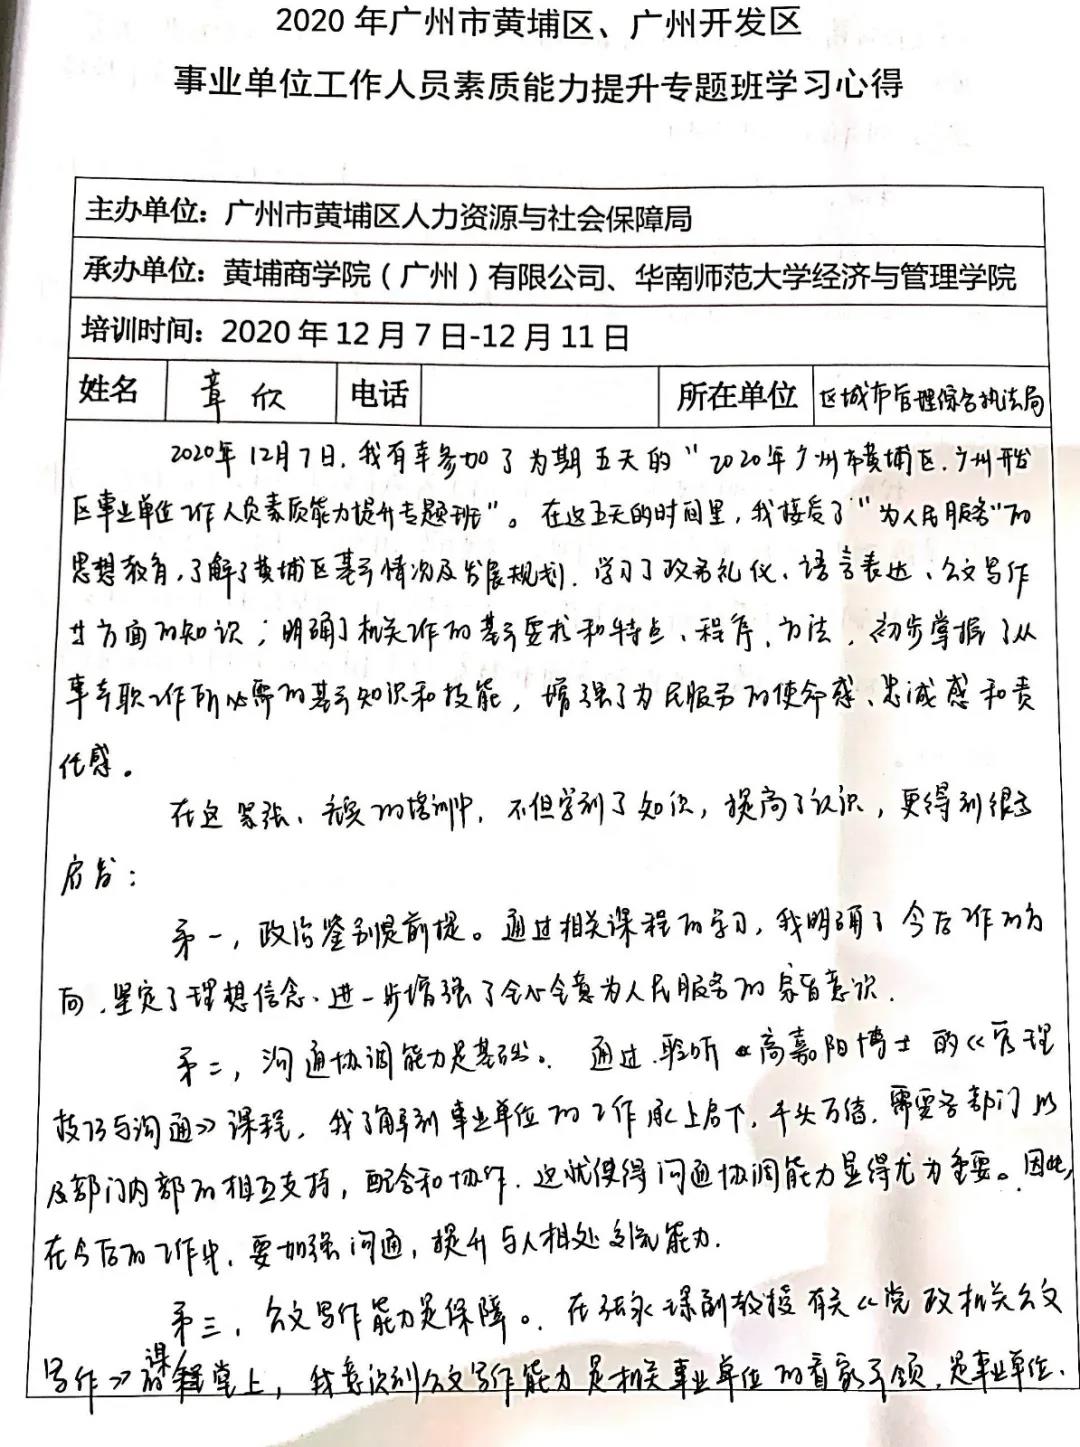 2020 年广州市黄埔区、广州开发区
事业单位工作人员素质能力提升专题班学习心得
主办单位：广州市黄埔区人力资源与社会保障局
承办单位：黄埔商学院（广州）有限公司、华南师范大学经济与管理学院
培训时间：2020 年 12 月 7 日-12 月 11 日
姓名 章欣 电话 所在单位 区城市管理综合执法局
2020年12月7日，我有幸参加了为期五天的“2020年广州市黄埔区、广州开发
区事业单位工作人员素质能力提升专题班”。在这五天的时间里，我接受了“为人民服务”的
思想教育，了解了黄埔区基本情况及发展规划，学习了政务礼仪、语言表达、公文写作
等方面的知识；明确了机关工作的基本要求和特点、程序、方法，初步掌握了从
事本职工作所必需的基本知识和技能，增强了为民服务的使命感、忠诚感和责
任感。
在这紧张、充实的培训中，不但学到了知识，提高了认识，更得到很多
启发：
第一，政治鉴别是前提。通过相关课程的学习，我明确了今后工作的方
向，坚定了理想信念、进一步增强了全心全意为人民服务的宗旨意识。
第二，沟通协调能力是基础。通过聆听高嘉阳博士的《管理
技巧与沟通》课程，我了解到事业单位的工作承上启下，千头万绪，需要各部门以
及部门内部的相互支持，配合和协作，这就使得沟通协调能力显得尤为重要。因此，
在今后的工作中，要加强沟通，提升与人相处交流能力。
第三，公文写作能力是保障。在张永璟副教授有关《党政机关公文
写作》的课程堂上，我意识到公文写作能力是机关事业单位的看家本领，是事业单位、